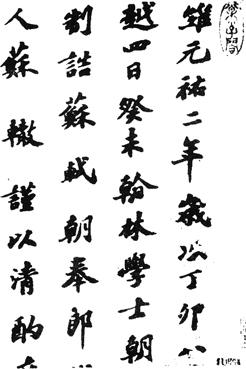 維元祐二年歲次丁卯八
越四日癸未翰林學士朝
制誥蘇軾朝奉郎
人蘇轍謹以清酌